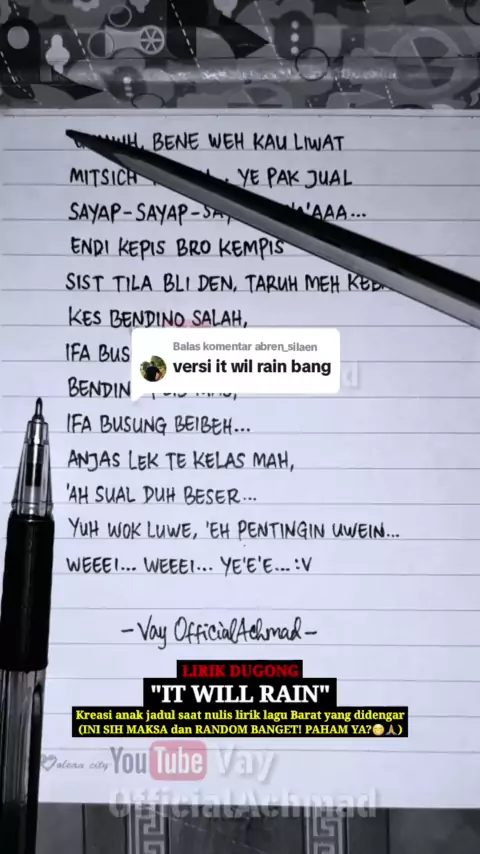 BENE WEH KAU LIWAT
MITSICH YE PAK JUAL
SAYAP-SAYAP-
ENDI KEPIS BRO KEMPIS
SIST TILA BLI DEN, TARUH MEH
KES BENDINO SALAH,
IFA
Balas komentar abren_silaen
versi it wil rain bang
IFA BUSUNG BEIBEH...
ANJAS LEK TE KELAS MAH,
'AH SUAL DUH BESER...
YUH WOK LUWE, 'EH PENTINGIN UWEIN...
WEEEI... WEEEI... YE'E'E... :V
-Vay OfficialAchmad-
LIRIK DUGONG
"IT WILL RAIN"
Kreasi anak jadul saat nulis lirik lagu Barat yang didengar
(INI SIH MAKSA dan RANDOM BANGET! PAHAM YA?😳🙏)
YouTube Vay
OfficialAchmad